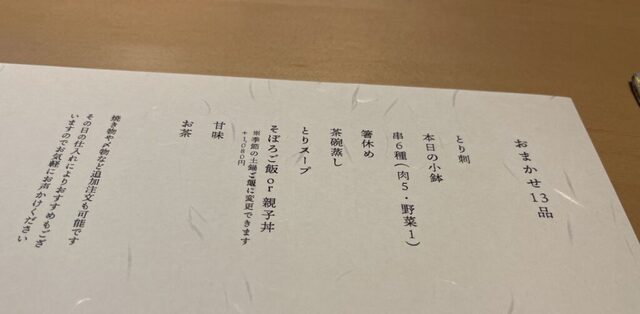 おまかせ13品
とり刺
本日の小鉢
串6種(肉5・野菜1)
箸休め
茶碗蒸し
とりスープ
そぼろご飯or親子丼
※季節の土鍋ご飯に変更できます
+1,080円
甘味
お茶
焼き物や〆物など追加注文も可能です
その日の仕入れによりおすすめもござ
いますのでお気軽にお声かけください